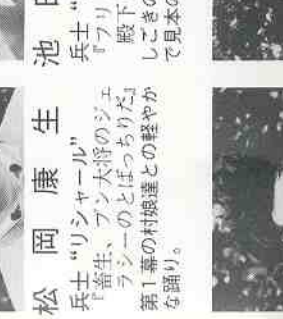 松岡康生
兵士“リシャール”
『畜生、ブン大将のジェ
ラシーのとばっちりだ』
第1幕の村娘達との軽やか
な踊り。
池
兵士“
『フリ
殿下
しごきの
で見本の